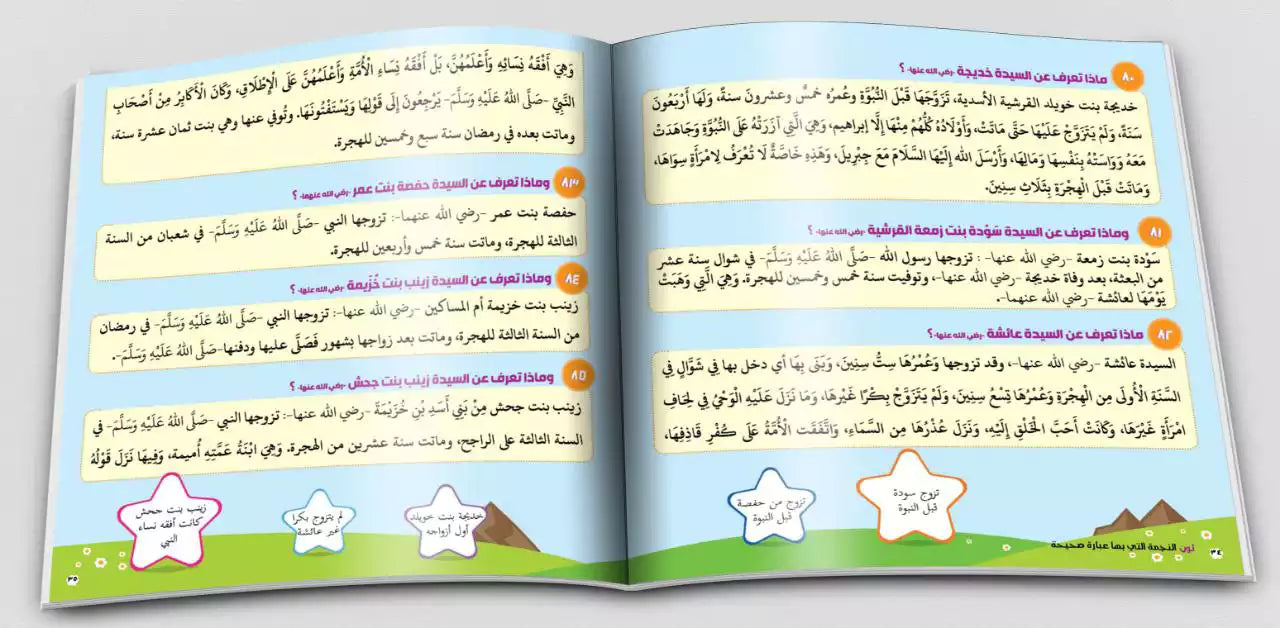 ٨٠ ماذا تعرف عن السيدة خديجة -رضي الله عنها- ؟
خديجة بنت خويلد القرشية الأسدية، تَزَوَّجَهَا قَبْلَ النُّبُوَّةِ وعُمُرُه خمسٌ وعشرونَ سنةً، وَلَهَا أَرْبَعُونَ
سَنَةً، وَلَمْ يَتَزَوَّجْ عَلَيْهَا حَتَّى مَاتَتْ، وَأَوْلَادُهُ كُلُّهُمْ مِنْهَا إِلَّا إبراهيم، وَهِيَ الَّتِي آزَرَتْهُ عَلَى النُّبُوَّةِ وَجَاهَدَتْ
مَعَهُ وَوَاسَتْهُ بِنَفْسِهَا وَمَالِهَا، وَأَرْسَلَ الله إِلَيْهَا السَّلَامَ مَعَ جِبْرِيلَ، وَهَذِهِ خَاصَّةٌ لَا تُعْرَفُ لِامْرَأَةٍ سِوَاهَا،
وَمَاتَتْ قَبْلَ الْهِجْرَةِ بِثَلَاثِ سِنِينَ.
٨١ وماذا تعرف عن السيدة سَوْدة بنت زمعة القرشية -رضي الله عنها- ؟
سَوْدة بنت زمعة -رضي الله عنها- : تزوجها رسول الله -صَلَّى اللهُ عَلَيْهِ وَسَلَّمَ- في شوال سنة عشر
من البعثة، بعد وفاة خديجة -رضي الله عنها-، وتوفيت سنة خمس وخمسين للهجرة. وَهِيَ الَّتِي وَهَبَتْ
يَوْمَهَا لعائشة -رضي الله عنهما-.
٨٢ ماذا تعرف عن السيدة عائشة -رضي الله عنها-؟
السيدة عائشة -رضي الله عنها-، وقد تزوجها وَعُمْرُهَا سِتُّ سِنِينَ، وَبَنَى بِهَا أي دخل بها في شَوَّالٍ فِي
السَّنَةِ الْأُولَى مِنَ الْهِجْرَةِ وَعُمْرُهَا تِسْعُ سِنِينَ، وَلَمْ يَتَزَوَّجْ بِكْرًا غَيْرَهَا، وَمَا نَزَلَ عَلَيْهِ الْوَحْيُ فِي لِحَافِ
امْرَأَةٍ غَيْرَهَا، وَكَانَتْ أَحَبَّ الْخَلْقِ إِلَيْهِ، وَنَزَلَ عُذْرُهَا مِنَ السَّمَاءِ، وَاتَّفَقَت الْأُمَّةُ عَلَى كُفْرِ قَاذِفِهَا،
تزوج سودة
قبل النبوة
تزوج من حفصة
قبل النبوة
لون النجمة التي بها عبارة صحيحة
٣٤
وَهِيَ أَفْقَهُ نِسَائِهِ وَأَعْلَمُهُنَّ، بَلْ أَفْقَهُ نِسَاءِ الْأُمَّةِ وَأَعْلَمُهُنَّ عَلَى الْإِطْلَاقِ، وَكَانَ الْأَكَابِرُ مِنْ أَصْحَابِ
النَّبِيِّ -صَلَّى اللهُ عَلَيْهِ وَسَلَّمَ- يَرْجِعُونَ إِلَى قَوْلِهَا وَيَسْتَفْتُونَهَا. وتُوفي عنها وهي بنت ثمان عشرة سنة،
وماتت بعده في رمضان سنة سبع وخمسين للهجرة.
٨٣ وماذا تعرف عن السيدة حفصة بنت عمر -رضي الله عنهما- ؟
حفصة بنت عمر -رضي الله عنهما-: تزوجها النبي -صَلَّى اللهُ عَلَيْهِ وَسَلَّمَ- في شعبان من السنة
الثالثة للهجرة، وماتت سنة خمس وأربعين للهجرة.
٨٤ وماذا تعرف عن السيدة زينب بنت خُزَيمة -رضي الله عنها- ؟
زينب بنت خزيمة أم المساكين -رضي الله عنها-: تزوجها النبي -صَلَّى اللهُ عَلَيْهِ وَسَلَّمَ- في رمضان
من السنة الثالثة للهجرة، وماتت بعد زواجها بشهور فَصَلَّى عليها ودفنها-صَلَّى اللهُ عَلَيْهِ وَسَلَّمَ-.
٨٥ وماذا تعرف عن السيدة زينب بنت جحش -رضي الله عنها- ؟
زينب بنت جحش مِنْ بَنِي أَسَدِ بْنِ خُزَيْمَةَ -رضي الله عنها-: تزوجها النبي -صَلَّى اللهُ عَلَيْهِ وَسَلَّمَ- في
السنة الثالثة على الراجح، وماتت سنة عشرين من الهجرة. وَهِيَ ابْنَةُ عَمَّتِهِ أُميمة، وَفِيهَا نَزَلَ قَوْلُهُ
خديجة بنت خويلد
أول أزواجه
لم يتزوج بكرا
غير عائشة
زينب بنت جحش
كانت أفقه نساء
النبي
٣٥